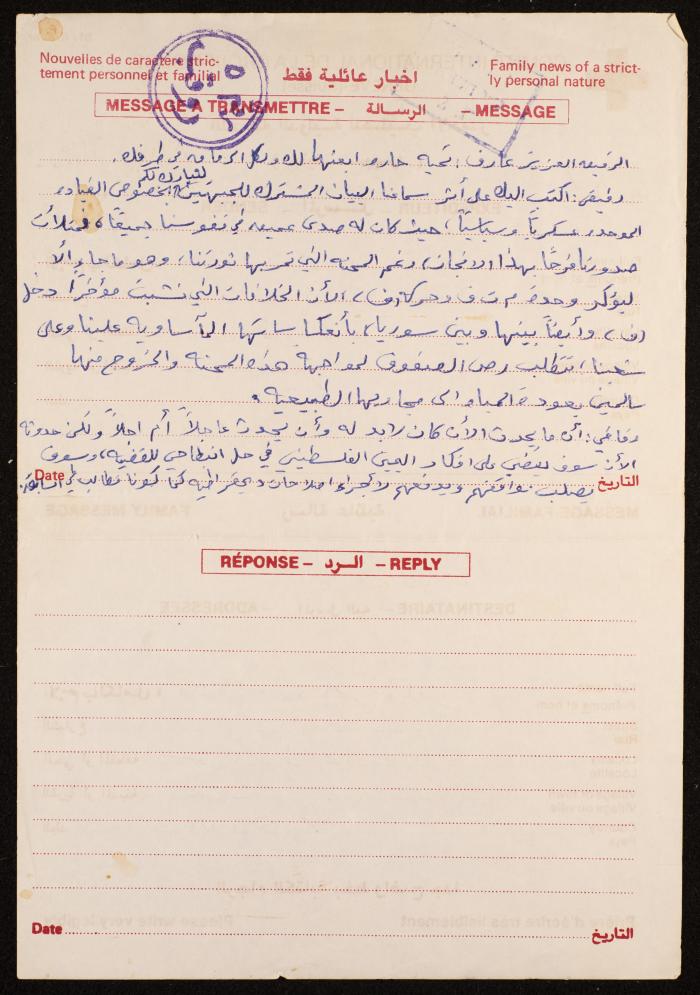 Nouvelles de caractère stric-
tement personnel et familial
اخبار عائلية فقط
Family news of a strict-
ly personal nature
MESSAGE A TRANSMETTRE – الرسالة – MESSAGE
الرفيق العزيز عارف، تحية حاره ابعثها لك ولكل الرفاقه طرفك.
رفيقي: اكتب اليك على أثر سماعنا البيان المشترك للجبهتين بخصوص القياده
لنبارك لكم
الموحده عسكرياً وسياسياً، حيث كان له صدى عميق في نفوسنا جميعاً، وتملأت
صدورنا فرحاً بهذا الانجاز، رغم المحنه التي تمر بها ثورتنا، وهو ما جاء إلا
ليؤكد وحدة م ت ف وحركة (ف)، الأن الخلافات التي نشبت مؤخراً دخل
(ف)، وأيضاً بينها وبين سوريا، بأنعكاساتها المأساويه علينا وعلى
شعبنا، تتطلب رص الصفوف لمواجهة هذه المحنه والخروج منها
سالمين بعودة المياه الى مجاريها الطبيعيه.
رفاقي: أن ما يحدث الأن كان لابد له وأن يحدث عاجلاً أم اجلاً ولكن حدوثه
الأن سوف يقضي على افكار اليمين الفلسطيني في حل للقضيه، وسوف
يصلب مواقفهم ويدفعهم لأجراء اصلاحات ديمقراطيه كما كنا نطالب في السابق.
Date التاريخ
RÉPONSE – الرد – REPLY
Date التاريخ